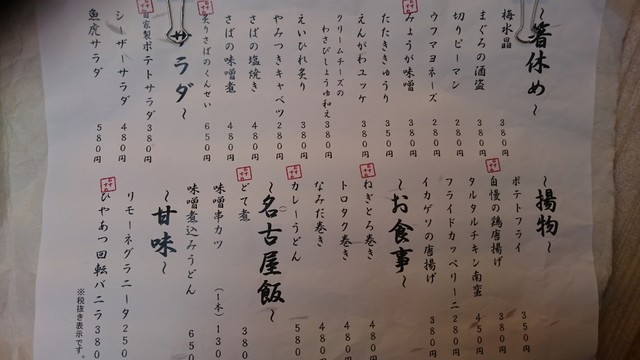 ～箸休め～
梅水晶 380円
まぐろの酒盗 380円
切りピーマン 280円
ウフマヨネーズ 280円
みょうが味噌 380円
たたききゅうり 350円
えんがわユッケ 380円
クリームチーズの
わさびしょうゆ和え 380円
えいひれ炙り 380円
やみつきキャベツ 280円
さばの塩焼き 480円
さばの味噌煮 480円
炙りさばのくんせい 650円
サラダ～
自家製ポテトサラダ 380円
シーザーサラダ 480円
魚虎サラダ 580円
～揚物～
ポテトフライ 350円
自慢の鶏唐揚げ 380円
タルタルチキン南蛮 450円
フライドカッペリーニ 280円
イカゲソの唐揚げ 380円
～お食事～
ねぎとろ巻き 480円
トロタク巻き 480円
なみだ巻き 480円
カレーうどん 580円
～名古屋飯～
どて煮 380
味噌串カツ (1本) 130
味噌煮込みうどん 650
～甘味～
リモーネグラニータ 250
ひやあつ回転バニラ 380
※税抜き表示です。